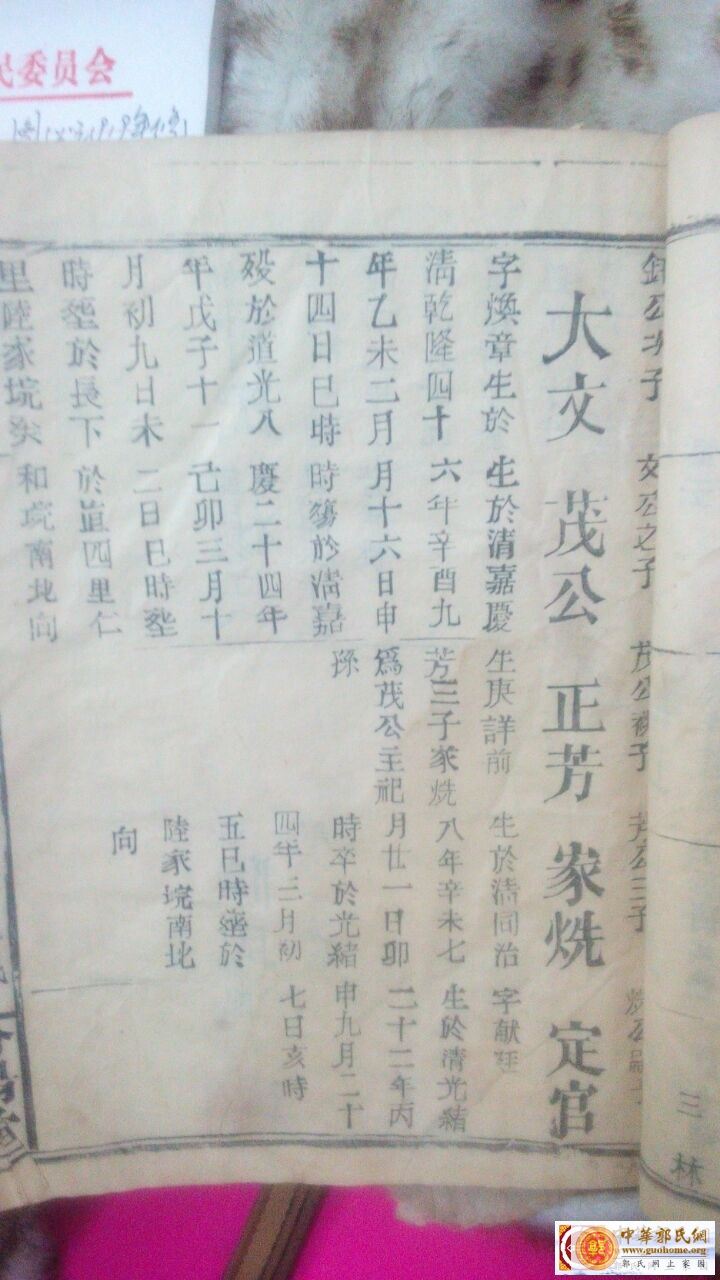 民委员会
公次子
大文
字煥章生於
清乾隆四十
年乙未二月
十四日巳時
殁於道光八
年戊子十一
月初九日未
時塟於長下
里陸家垸尖
文公之子
茂公
生於清嘉慶
六年辛酉九
月十六日申
時殤於清嘉
慶二十四年
己卯三月十
二日巳時塟
於道四里仁
和垸南北向
茂公子
正芳
生庚詳前
芳三子家烍
爲茂公主祀
孫
芳公三子
家烍
生於清同治
八年辛未七
月廿一日卯
時卒於光緒
四年三月初
五巳時塟於
陸家垸南北
向
烍公
定官
字献廷
生於清光緒
二十二年丙
申九月二十
七日亥時
三
林
中華郭氏網
www.guohome.org
郭氏网上家园